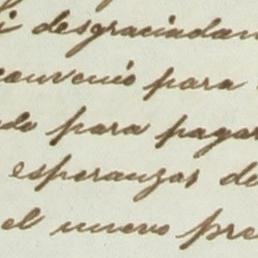 i desgraciadam
convenio para
do para pagar
esperanzas de
el nuevo pre